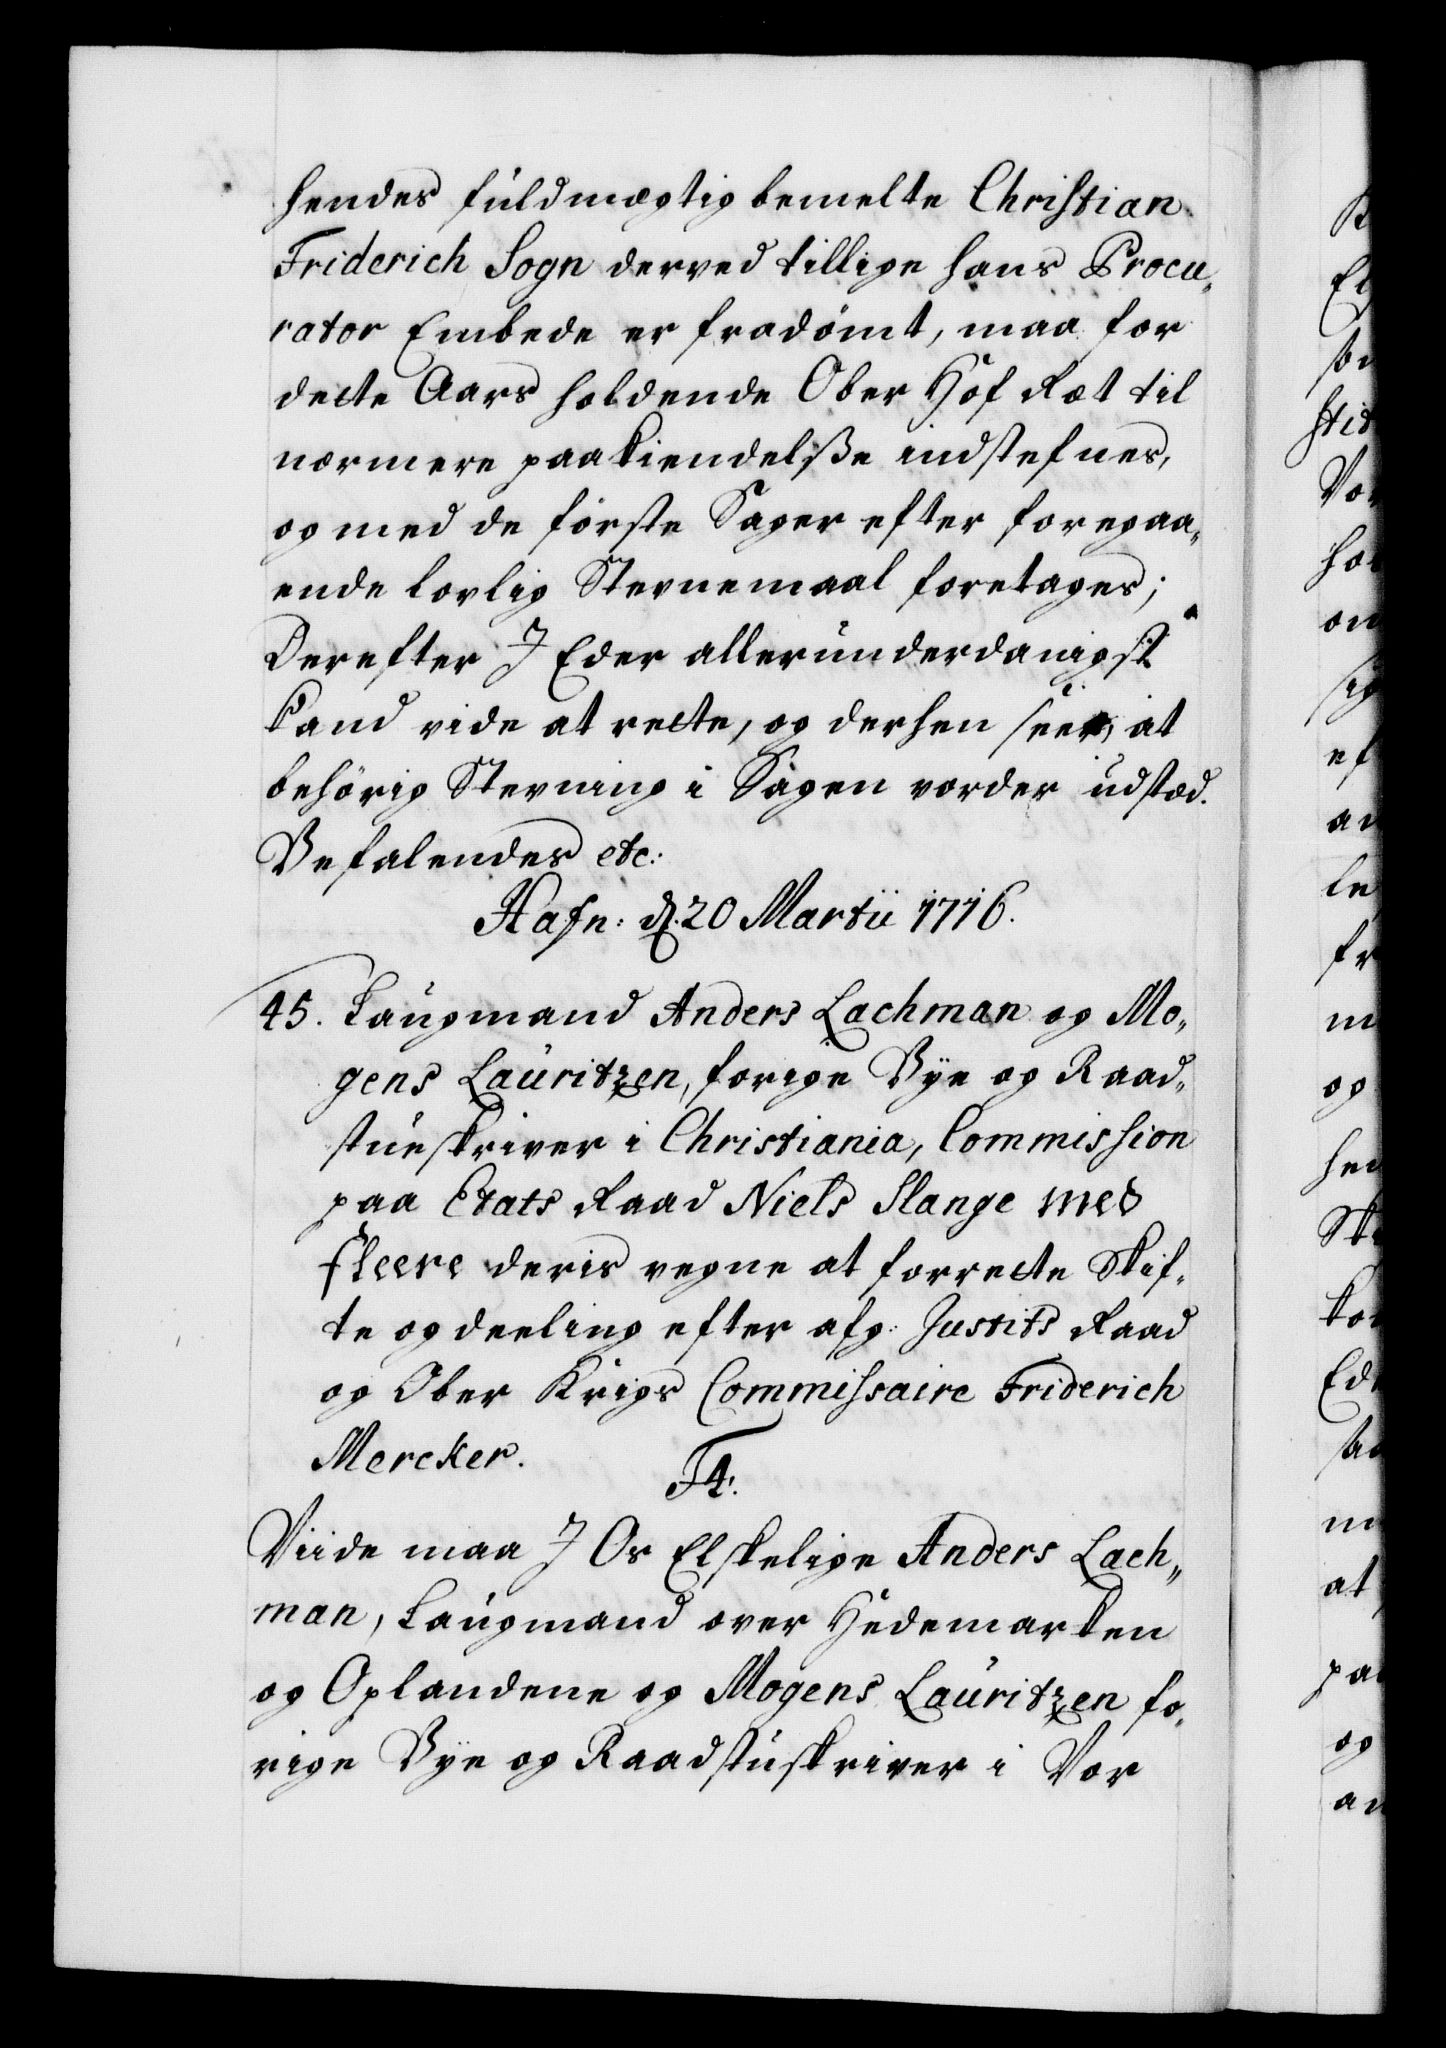 hendes fuldmegtig bemelte Christian
Friderich Sogn derved tillige hans Procu„
rator Embede er fradømt, maa for
dette Aars holdende Ober Hof Ræt til
nærmere paakiendelsse indstefnes,
og med de første Sager efter foregaa„
ende lovlig Stevnemaal foretages;
Derefter I Eder allerunderdanigst
kand vide at rette, og derhen seer, at
behørig Stevning i Sagen vorder udstæd.
Befalendes etc:
Hafn: d. 20 Martii 1716.
45. Laugmand Anders Lachman og Mo„
gens Lauritzen, forige Bye og Raad„
stueskriver i Christiania, Commission
paa Etats Raad Niels Slange med
fleere deris vegne at forrette Skif„
te og deeling efter afg: Justits Raad
og Ober Krigs Commissaire Friderich
Mercker.
F4.
Viide maa I Os Elskelige Anders Lach„
man, Laugmand over Hedemarken
og Oplandene og Mogens Lauritzen fo„
rige Bye og Raadstuskriver i Vor